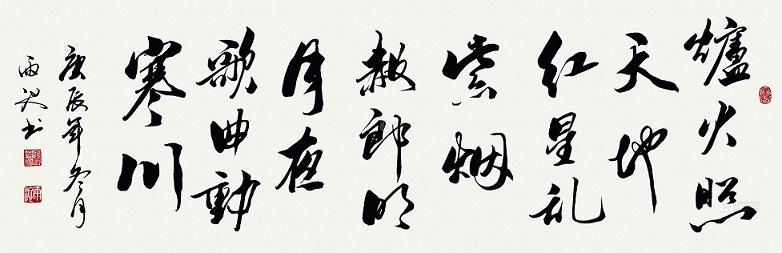 爐火照
天地
红星乱
紫烟
赧郎明
月夜
歌曲動
寒川
庚辰年冬月
雨 书